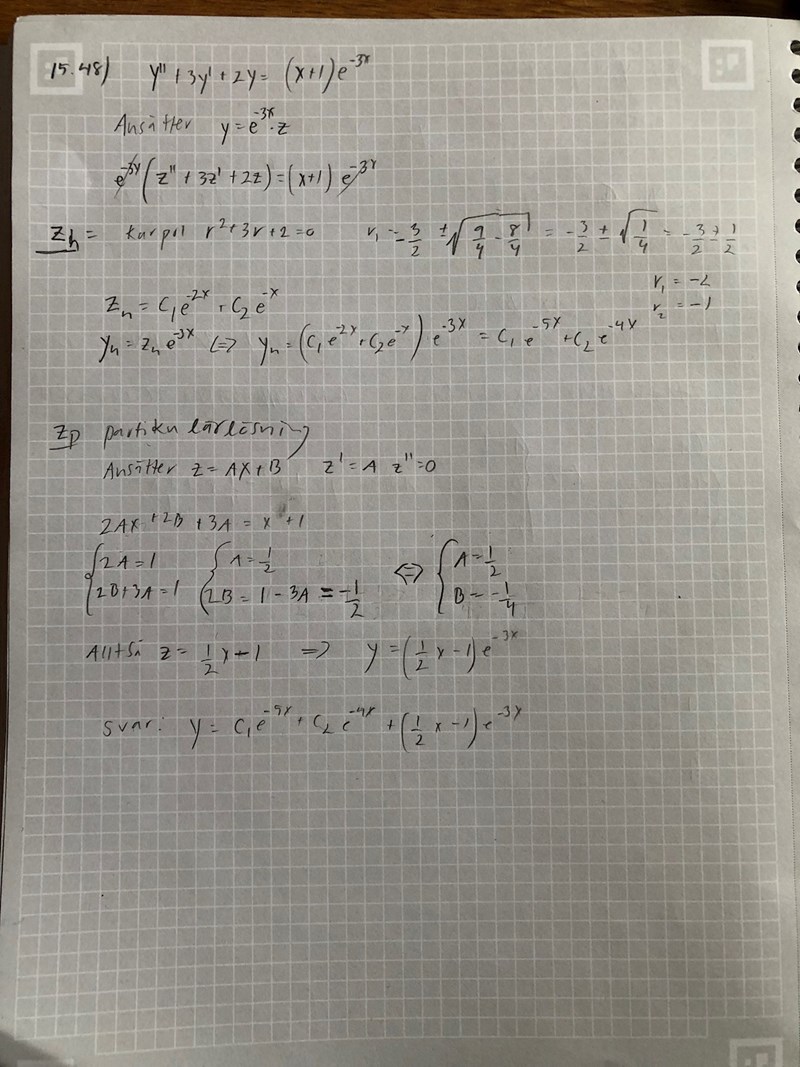 15.48) y'' + 3y' + 2y = (x+1)e^{-3x}
Ansätter y = e^{-3x}·z
e^{-3x}(z'' + 3z' + 2z) = (x+1) e^{-3x}
Z_h = Karpol r² + 3r + 2 = 0 r₁ = -3/2 ± √(9/4 - 8/4) = -3/2 ± √(1/4) = -3/2 ± 1/2
r₁ = -2
r₂ = -1
Z_h = C₁e^{-2x} + C₂e^{-x}
y_h = z_h e^{-3x} <=> y_h = (C₁e^{-2x} + C₂e^{-x}) e^{-3x} = C₁e^{-5x} + C₂e^{-4x}
Zp partikulärlösning
Ansätter z = AX + B z' = A z'' = 0
2Ax + 2B + 3A = x + 1
{2A = 1 {A = 1/2 <=> {A = 1/2
{2B + 3A = 1 {2B = 1 - 3A = -1/2 {B = -1/4
Alltså z = 1/2 x - 1 => y = (1/2 x - 1)e^{-3x}
Svar: y = C₁e^{-5x} + C₂e^{-4x} + (1/2 x - 1)e^{-3x}